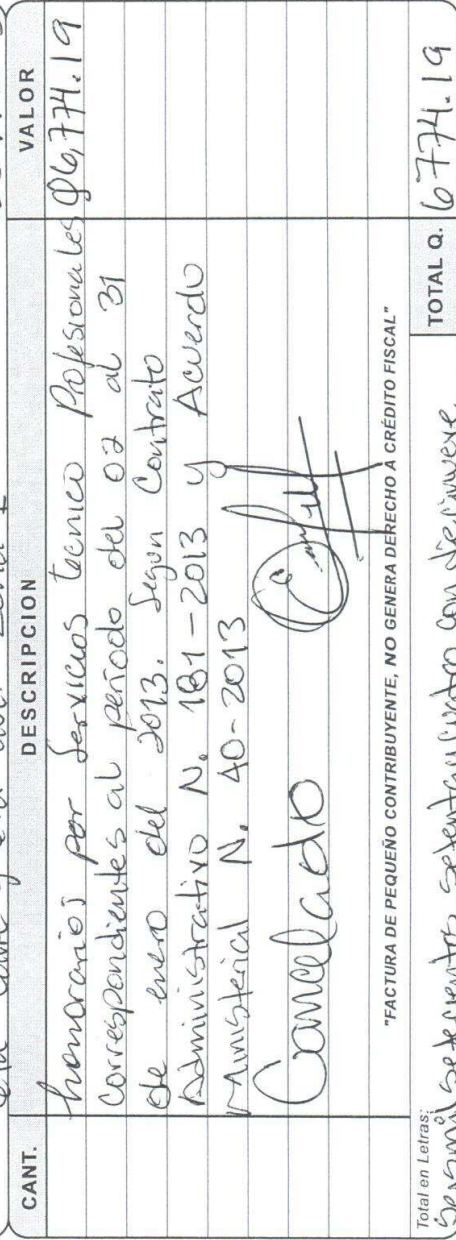 CANT. DESCRIPCION VALOR
honorarios por Servicios tecnico Profesionales Q6,774.19
Correspondientes al período del 02 al 31
de enero del 2013. Segun Contrato
Administrativo N. 181-2013 y Acuerdo
Ministerial N. 40-2013
Cancelado
"FACTURA DE PEQUEÑO CONTRIBUYENTE, NO GENERA DERECHO A CRÉDITO FISCAL"
Total en Letras: TOTAL Q. 6774.19
Seismil Setecientos setentaycuatro con diecinueve